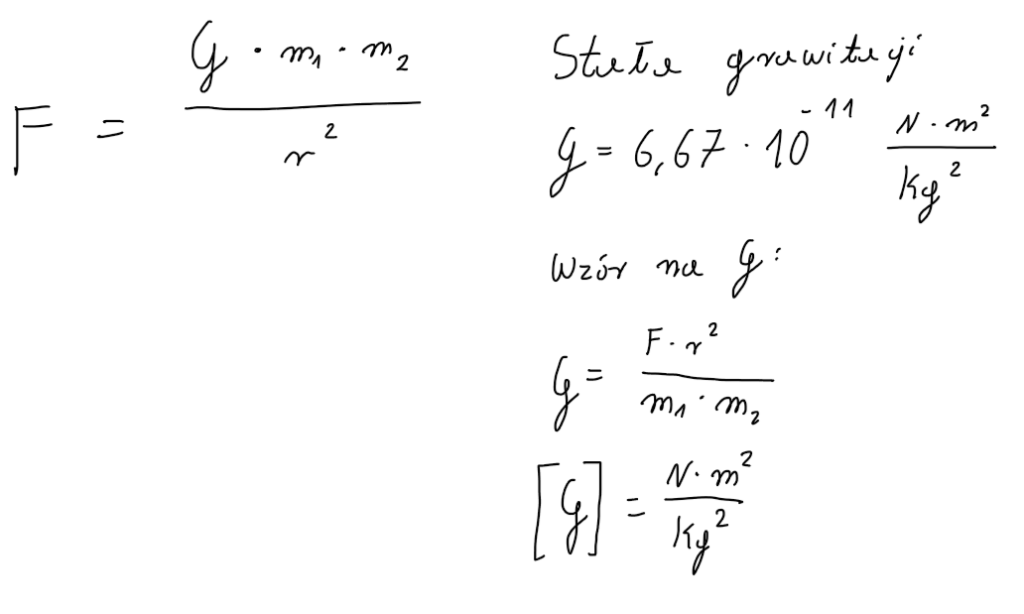 F = \frac{G \cdot m_1 \cdot m_2}{r^2}
Stała grawitacji
G = 6,67 \cdot 10^{-11} \frac{N \cdot m^2}{kg^2}
Wzór na G:
G = \frac{F \cdot r^2}{m_1 \cdot m_2}
[G] = \frac{N \cdot m^2}{kg^2}